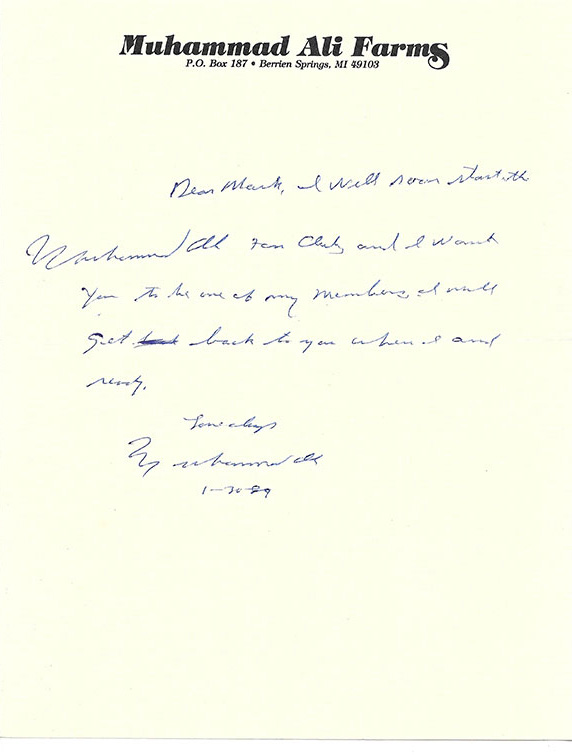 Muhammad Ali Farms
P.O. Box 187 • Berrien Springs, MI 49103
Dear Mark, I will soon start the
Muhammad Ali Fan Club, and I want
You to be one of my Members, I will
Get back to you when I and
ready.
Love always
Muhammad Ali
1-30-89